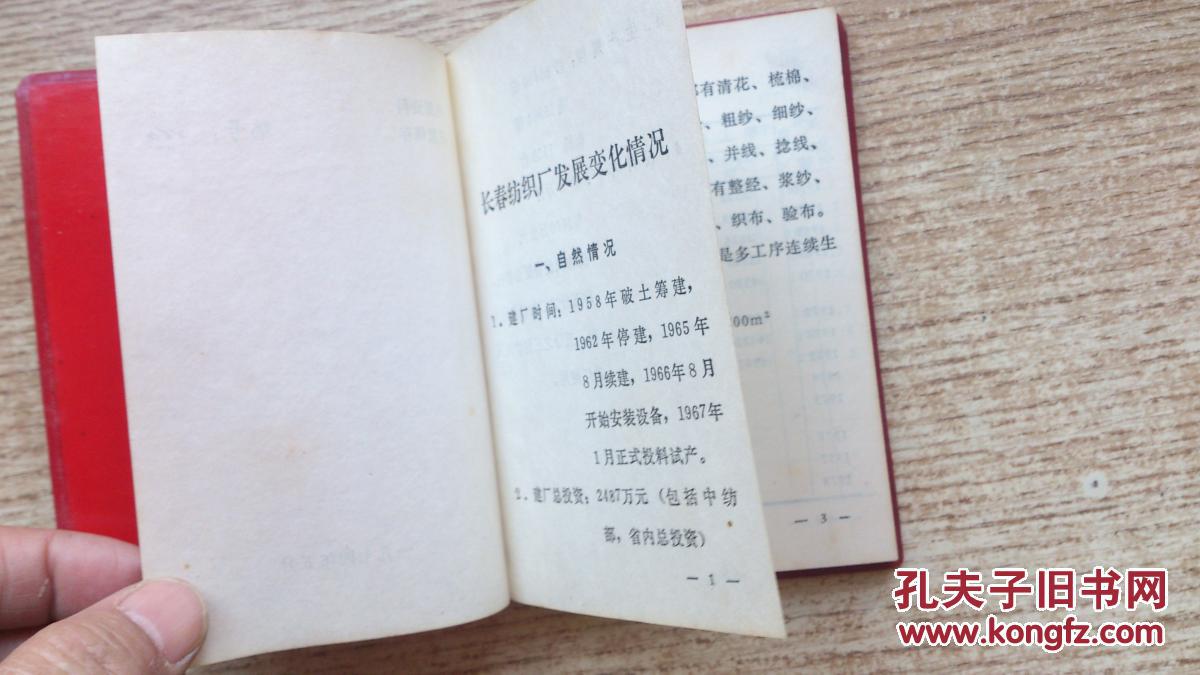 长春纺织厂发展变化情况
一、自然情况
1．建厂时间：1958年破土筹建，
1962年停建，1965年
8月续建，1966年8月
开始安装设备，1967年
1月正式投料试产。
2．建厂总投资：2487万元（包括中纺
部，省内总投资）
— 1 —
有清花、梳棉、
、粗纱、细纱、
、并线、捻线、
有整经、浆纱、
、织布、验布。
是多工序连续生
00m²
— 3 —
孔夫子旧书网
www.kongfz.com